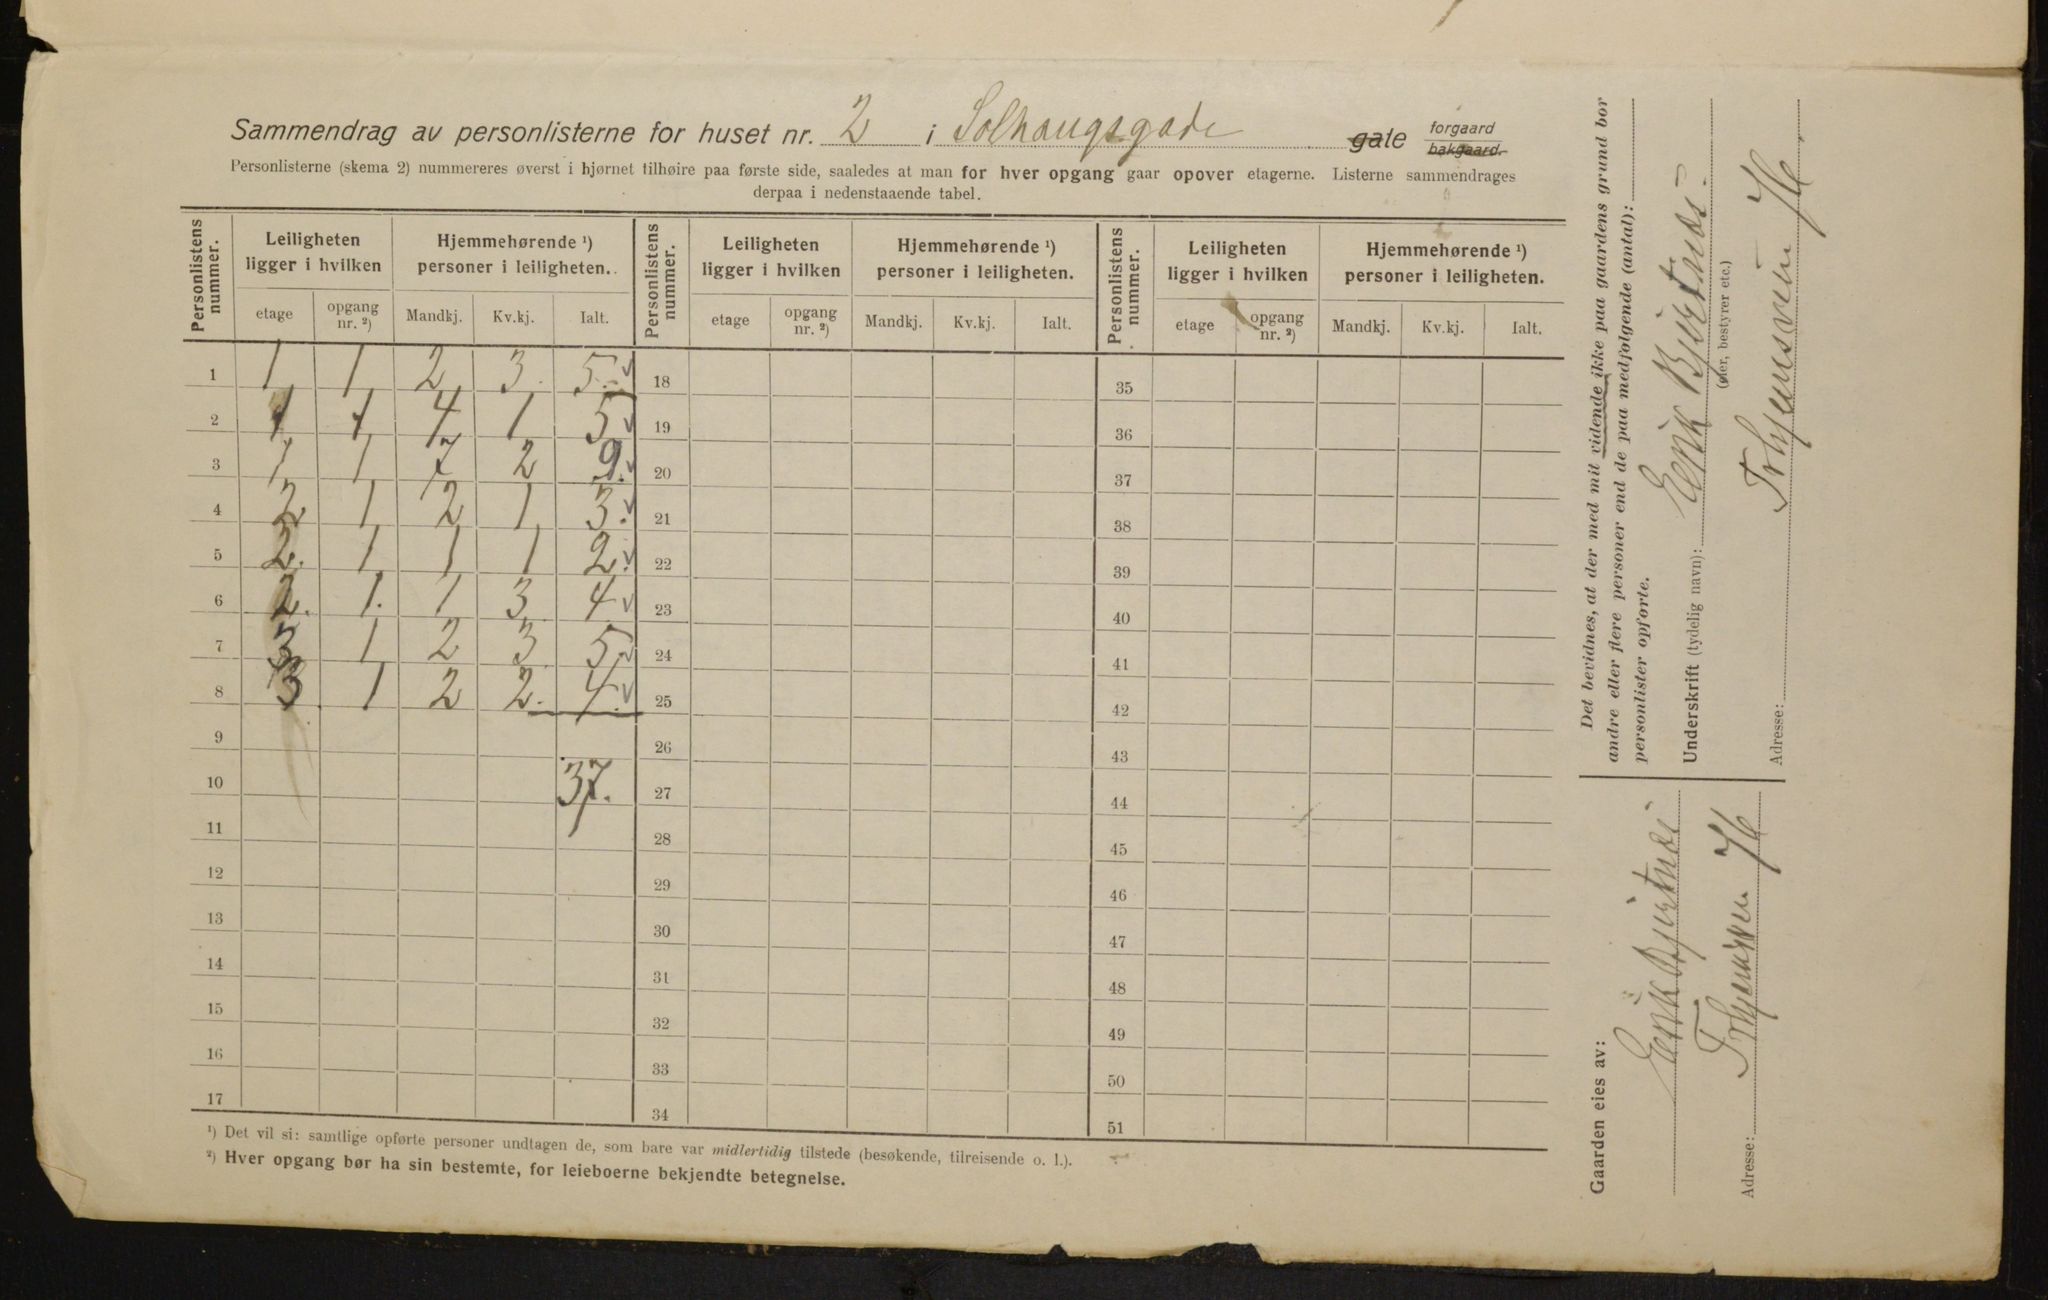 Sammendrag av personlisterne for huset nr. 2 i Solhaugsgade gate forgaard bakgaard.
Personlisterne (skema 2) nummereres øverst i hjørnet tilhøire paa første side, saaledes at man for hver opgang gaar opover etagerne. Listerne sammendrages
derpaa i nedenstaaende tabel.
Personlistens nummer. Leiligheten ligger i hvilken Hjemmehørende ¹) personer i leiligheten. Personlistens nummer. Leiligheten ligger i hvilken Hjemmehørende ¹) personer i leiligheten. Personlistens nummer. Leiligheten ligger i hvilken Hjemmehørende ¹) personer i leiligheten.
etage opgang nr. ²) Mandkj. Kv.kj. Ialt. etage opgang nr. ²) Mandkj. Kv.kj. Ialt. etage opgang nr. ²) Mandkj. Kv.kj. Ialt.
1 1 1 2 3 5 18 35
2 1 1 4 1 5 19 36
3 1 1 7 2 9 20 37
4 2 1 2 1 3 21 38
5 2 1 1 1 2 22 39
6 2 1 1 3 4 23 40
7 3 1 2 3 5 24 41
8 3 1 2 2 4 25 42
9 26 43
10 37. 27 44
11 28 45
12 29 46
13 30 47
14 31 48
15 32 49
16 33 50
17 34 51
¹) Det vil si: samtlige opførte personer undtagen de, som bare var midlertidig tilstede (besøkende, tilreisende o. l.).
²) Hver opgang bør ha sin bestemte, for leieboerne bekjendte betegnelse.
Det bevidnes, at der med mit vidende ikke paa gaardens grund bor
andre eller flere personer end de paa medfølgende (antal):
personlister opførte.
Underskrift (tydelig navn):
(eier, bestyrer etc.)
Adresse:
Gaarden eies av:
Adresse: